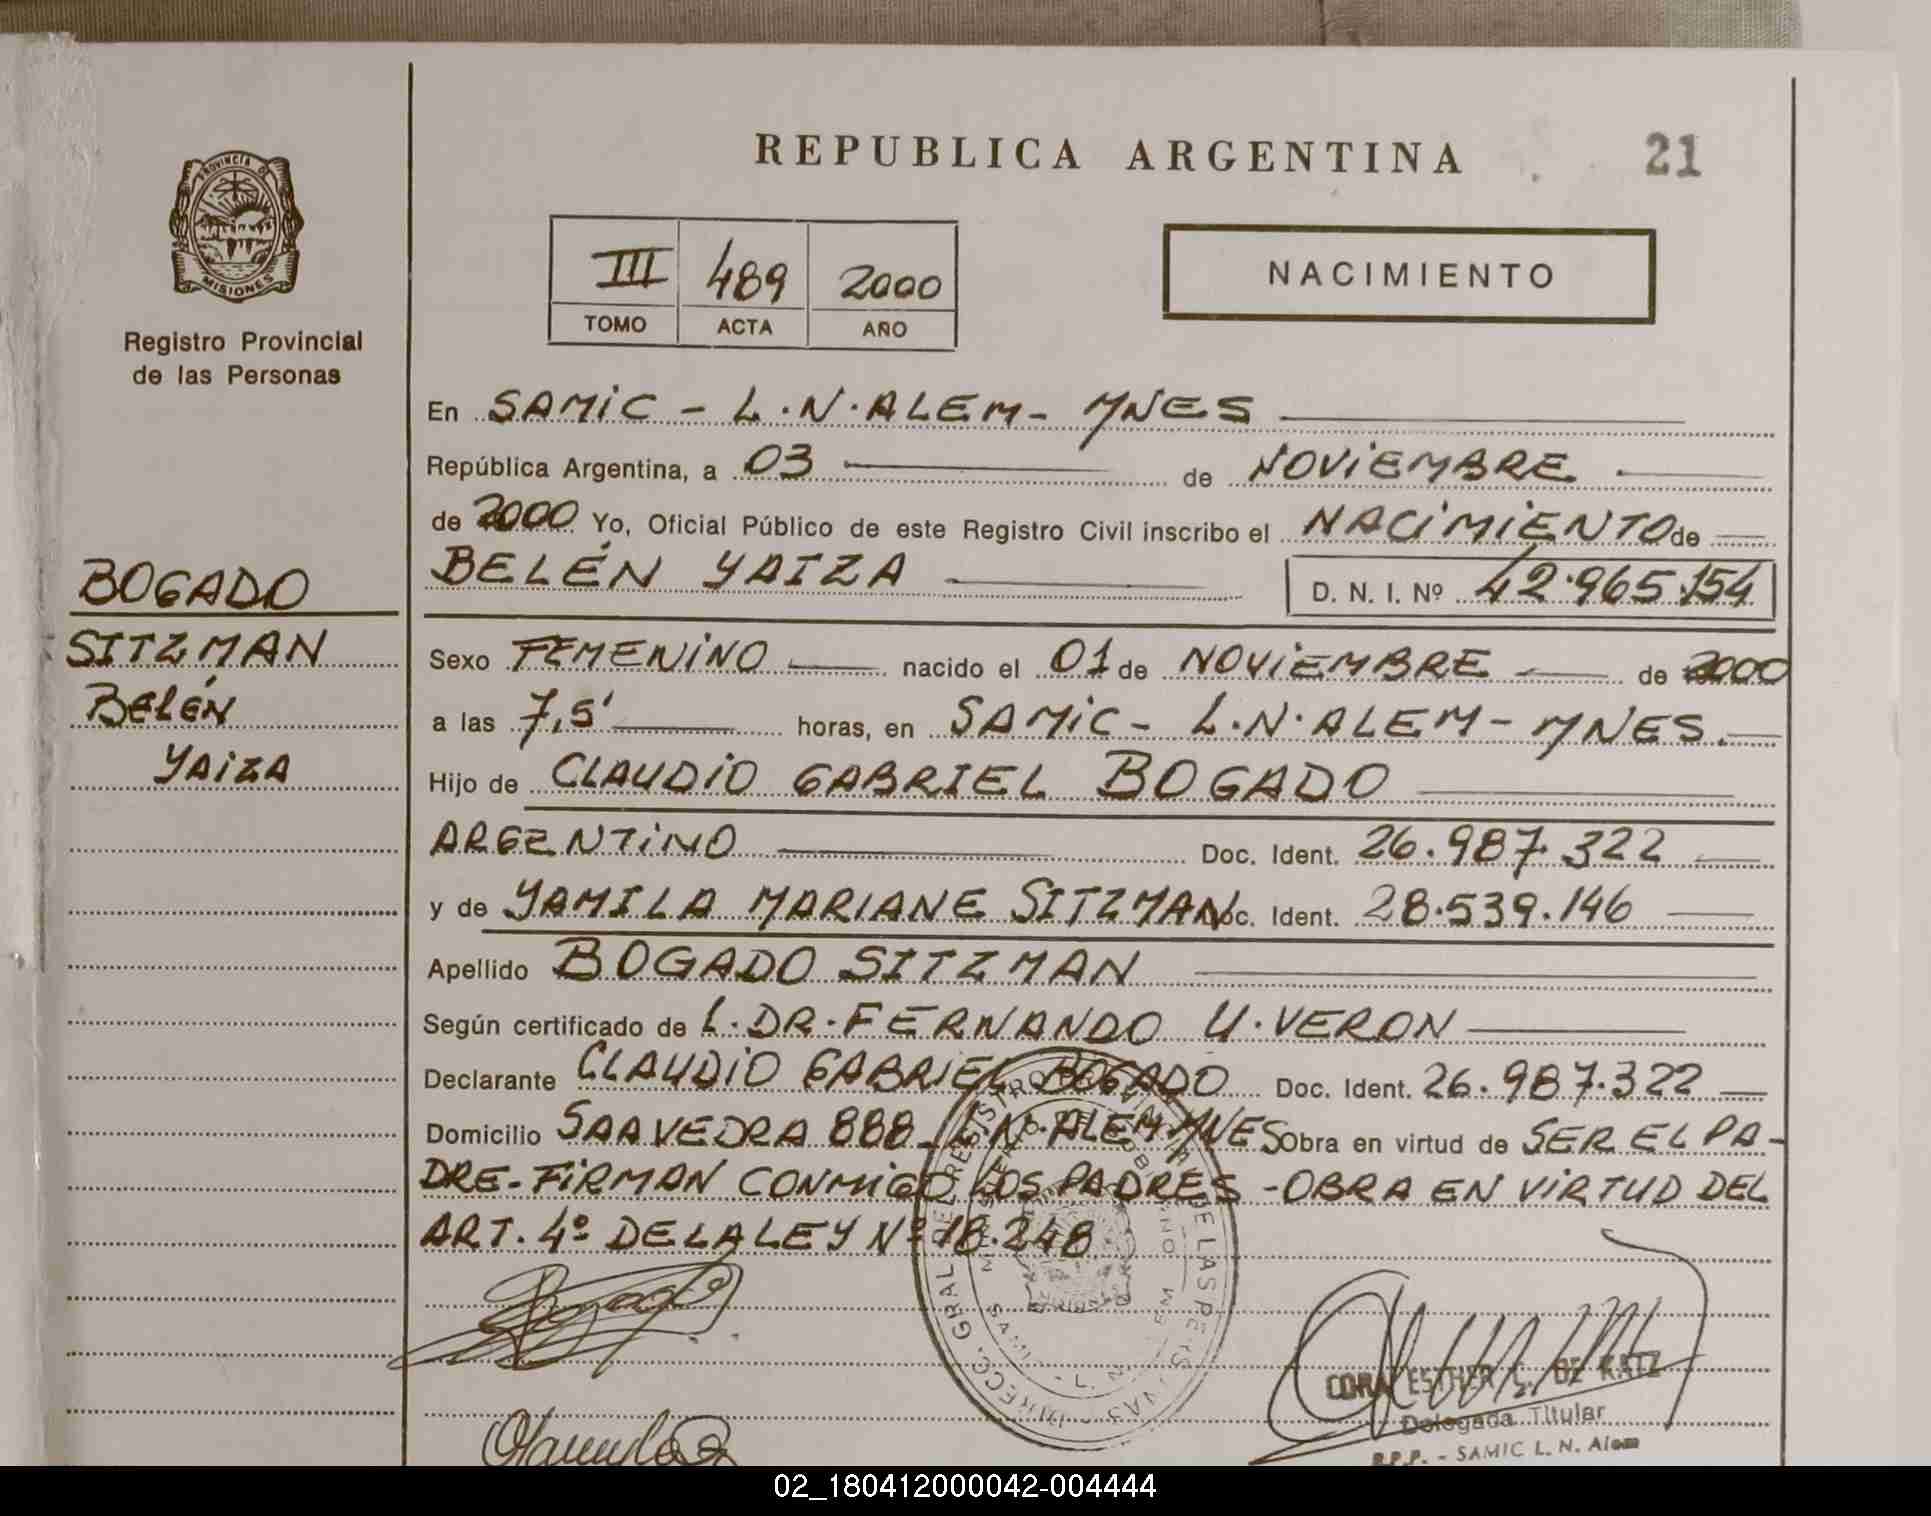 REPUBLICA ARGENTINA
21
PROVINCIA DE
MISIONES
Registro Provincial
de las Personas
III 489 2000
TOMO ACTA AÑO
NACIMIENTO
En SAMIC - L.N. ALEM - MNES
República Argentina, a 03 de NOVIEMBRE
de 2000 Yo, Oficial Público de este Registro Civil inscribo el NACIMIENTO de
BELÉN YAIZA D. N. I. Nº 42.965.154
BOGADO
SITZMAN
BELÉN
YAIZA
Sexo FEMENINO nacido el 01 de NOVIEMBRE de 2000
a las 7,5' horas, en SAMIC - L.N. ALEM - MNES.
Hijo de CLAUDIO GABRIEL BOGADO
ARGENTINO Doc. Ident. 26.987.322
y de YAMILA MARIANE SITZMAN Doc. Ident. 28.539.146
Apellido BOGADO SITZMAN
Según certificado de L. DR. FERNANDO U. VERON
Declarante CLAUDIO GABRIEL BOGADO Doc. Ident. 26.987.322
Domicilio SAAVEDRA 888 - L.N. ALEM - MNES Obra en virtud de SER EL PA-
DRE - FIRMAN CONMIGO LOS PADRES - OBRA EN VIRTUD DEL
ART. 4º DE LA LEY Nº 18.248
CORA ESTHER L. DE KATZ
Delegada Titular
R.P.P. - SAMIC L. N. Alem
02_180412000042-004444